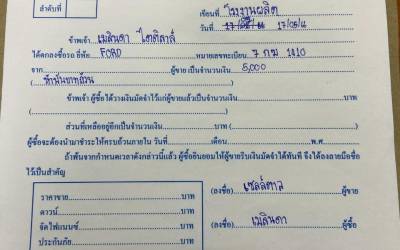 ลำดับที่
เขียนที่ โรงงานผลิต
วันที่ 17/05/61
ข้าพเจ้า เมลินดา
ได้ตกลงซื้อรถ ยี่ห้อ FORD หมายเลขทะเบียน 7 กฆ 1010
จาก ผู้ขาย เป็นจำนวนเงิน 5,000
( ห้าพันบาทถ้วน )
ข้าพเจ้า ผู้ซื้อได้วางเงินมัดจำไว้แก่ผู้ขายแล้วเป็นจำนวนเงิน บาท
( )
ส่วนที่เหลืออยู่อีกเป็นจำนวนเงิน บาท (
ผู้ซื้อจะต้องนำมาชำระให้ครบถ้วนภายใน วันที่ เดือน พ.ศ.
ถ้าพ้นจากกำหนดเวลาดังกล่าวนี้แล้ว ผู้ซื้อยินยอมให้ผู้ขายริบเงินมัดจำได้ทันที จึงได้ลงลายมือชื่อ
ไว้เป็นสำคัญ
ราคาขาย บาท
(ลงชื่อ) ผู้ขาย
ดาวน์ บาท
จัดไฟแนนซ์ บาท
(ลงชื่อ) เมลินดา ผู้ซื้อ
ประกันภัย บาท